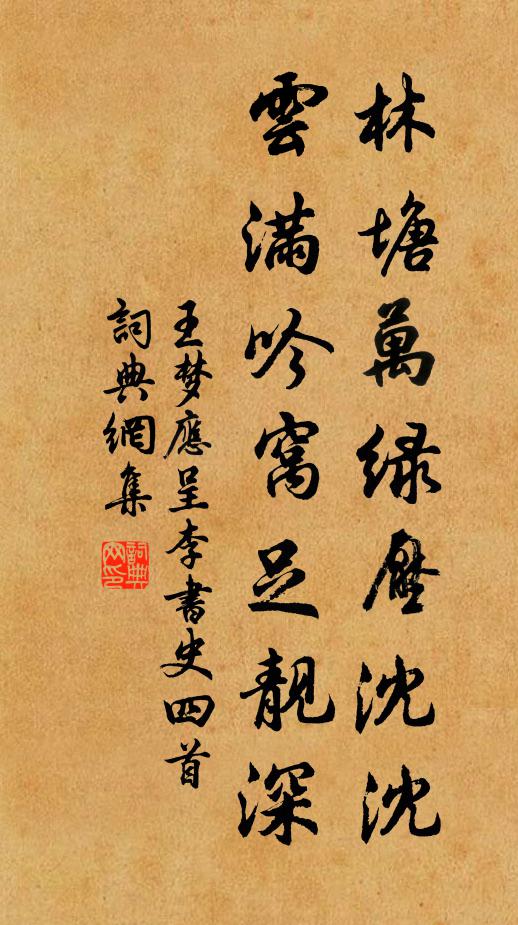 林塘萬緑壓沈沈
雲滿吟窩足靚深
王梦應呈李書史四首
詞典網集
詞典
网印